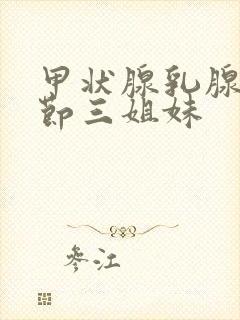 甲状腺乳腺
节三姐妹
参江